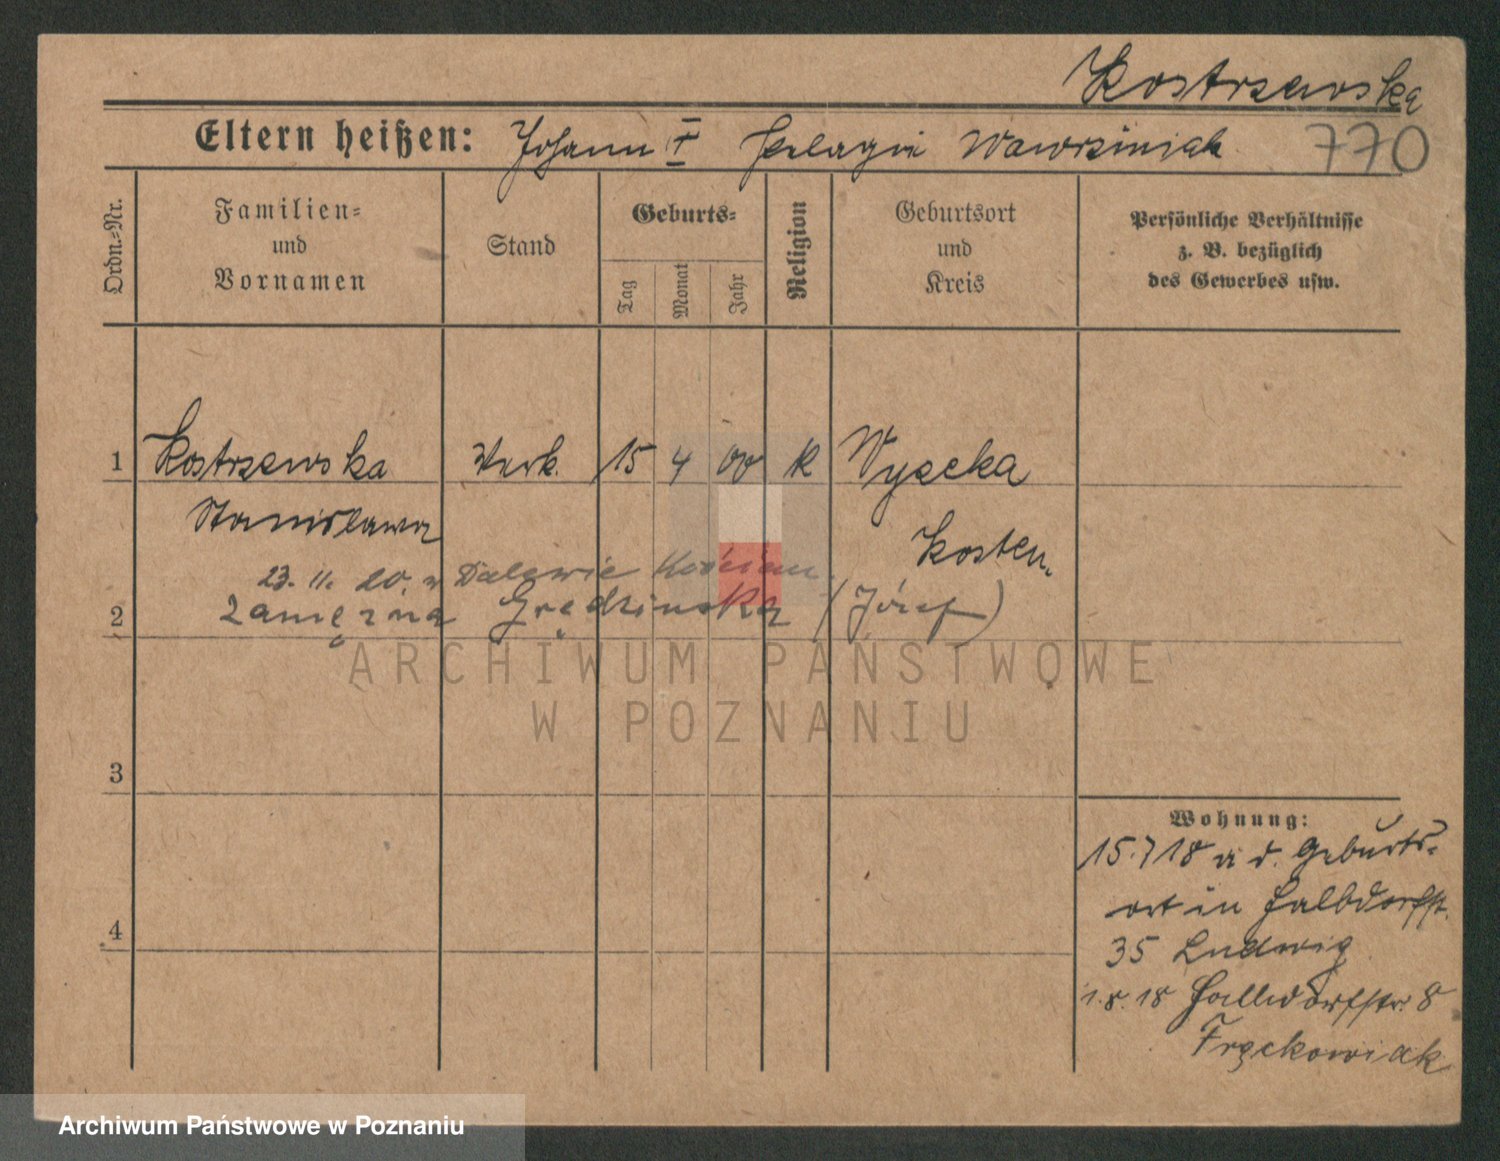 Kostrzewska
Eltern heißen: Johann † Pelagia Wawrziniak 770
Ordn.-Nr.
Familien-
und
Vornamen
Stand
Geburts-
Tag
Monat
Jahr
Religion
Geburtsort
und
Kreis
Persönliche Verhältnisse
z. B. bezüglich
des Gewerbes usw.
1 Kostrzewska Verk. 15 4 00 K Wyscka
Stanislawa Kosten.
23. 11. 20. w Dalewie Kościan.
2 Zamężna Grędzinska (Józef)
ARCHIWUM PAŃSTWOWE
W POZNANIU
3
4
Wohnung:
15.7 18 a d. Geburts-
ort in Halbdorfst.
35 Ludwig
1.8.18 Halbdorfstr. 8
Frąckowiak
Archiwum Państwowe w Poznaniu